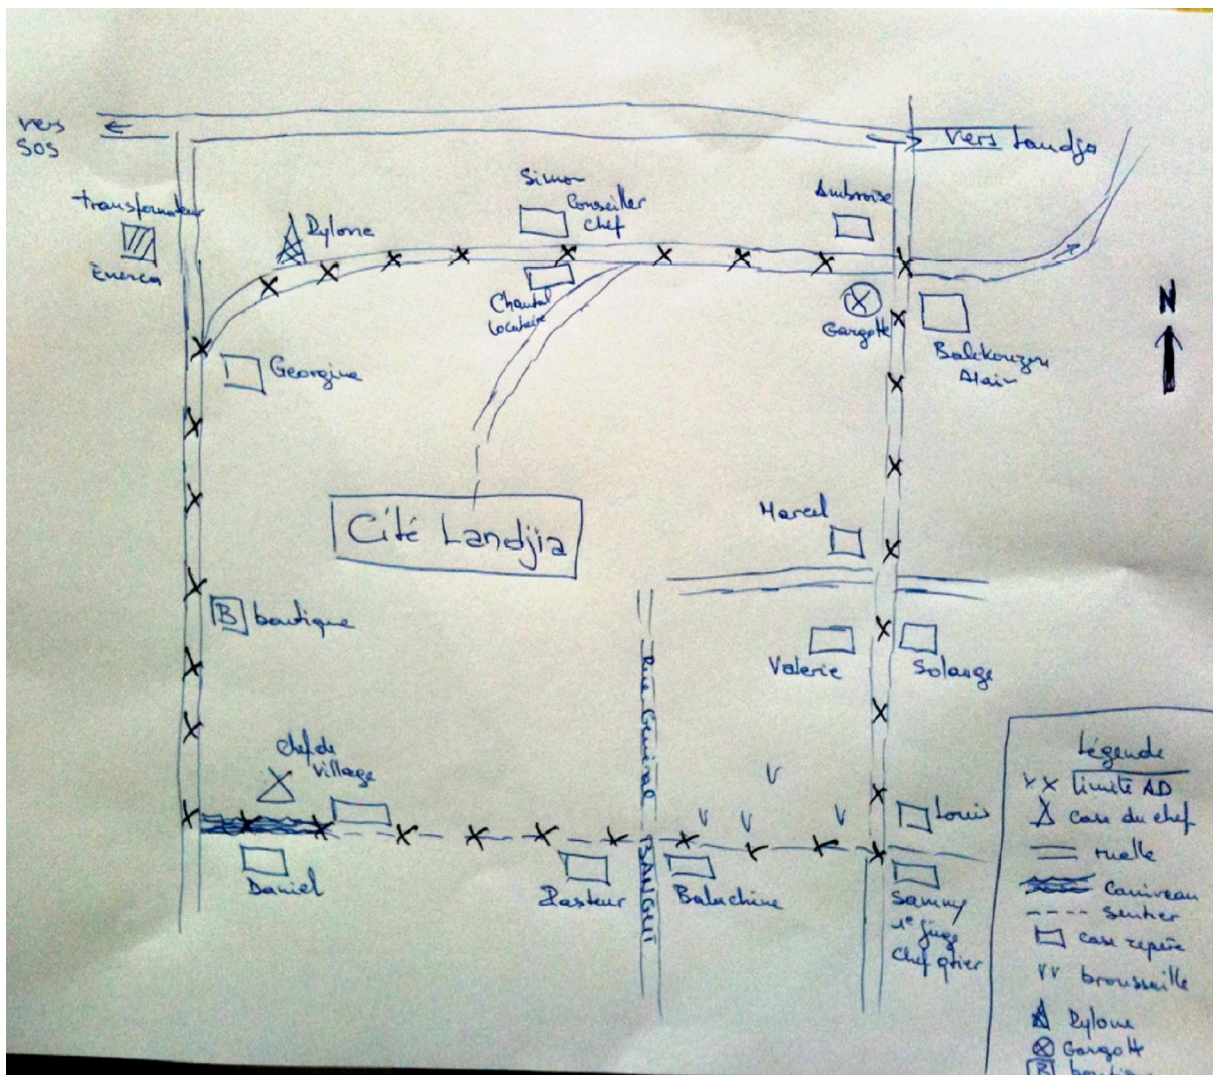 vers
SOS
Vers Landja
transformateur
Enerca
Pylone
Simon
Conseiller
Chef
Ambroise
Chantal
Locataire
Gargotte
N
Georgine
Alain
Marcel
Cité Landjia
B boutique
Valerie
Solange
Rue General BANGUI
Chef de
Village
Louis
Daniel
Pasteur
Balachine
Sammy
1e juge
Chef qtier
Légende
x x limite AD
Case du chef
ruelle
Caniveau
sentier
case repère
broussaille
Pylone
Gargott
B boutique